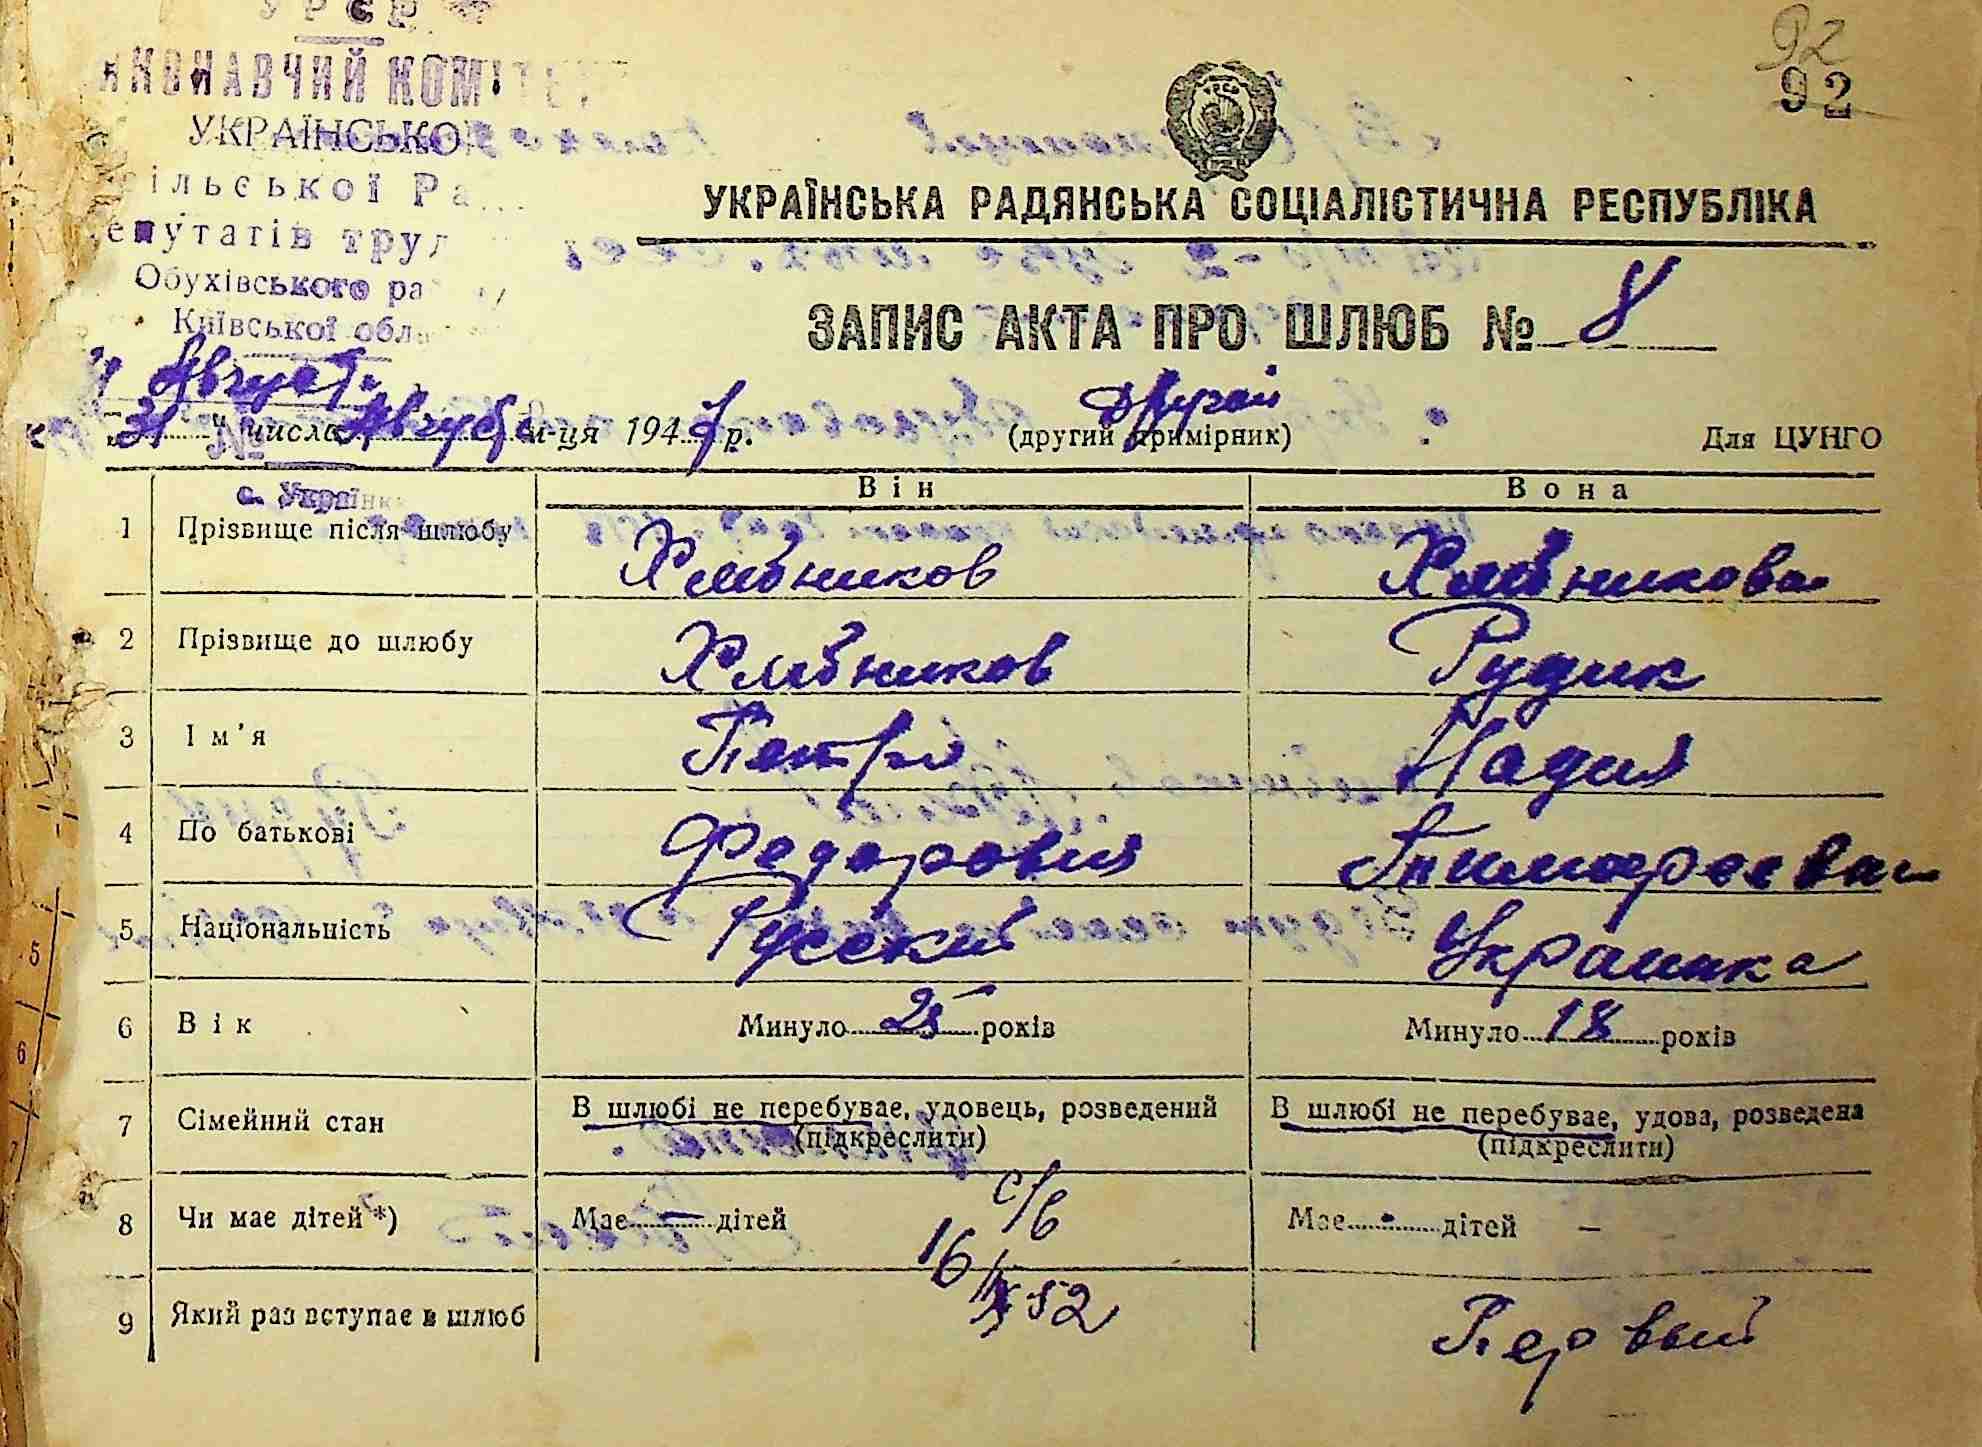 УРСР
ВИКОНАВЧИЙ КОМІТЕТ
УКРАЇНСЬКОЇ
сільської Ра
депутатів труд
Обухівського ра
Київської обл
Август
№
с. Українка
92
92
УРСР
УКРАЇНСЬКА РАДЯНСЬКА СОЦІАЛІСТИЧНА РЕСПУБЛІКА
ЗАПИС АКТА ПРО ШЛЮБ № 8
„31" числа Август м-ця 1947 р.
Другой
(другий примірник)
Для ЦУНГО
Він Вона
1 Прізвище після шлюбу Хлебников Хлебникова
2 Прізвище до шлюбу Хлебников Рудик
3 Ім'я Петро Надия
4 По батькові Федорович Тимофеевна
5 Національність Русский Украинка
6 Вік Минуло 25 років Минуло 18 років
7 Сімейний стан В шлюбі не перебуває, удовець, розведений В шлюбі не перебуває, удова, розведена
(підкреслити) (підкреслити)
8 Чи має дітей *) Має — дітей Має - дітей —
с/в
16/IX 52
9 Який раз вступає в шлюб Первый
5
6
7